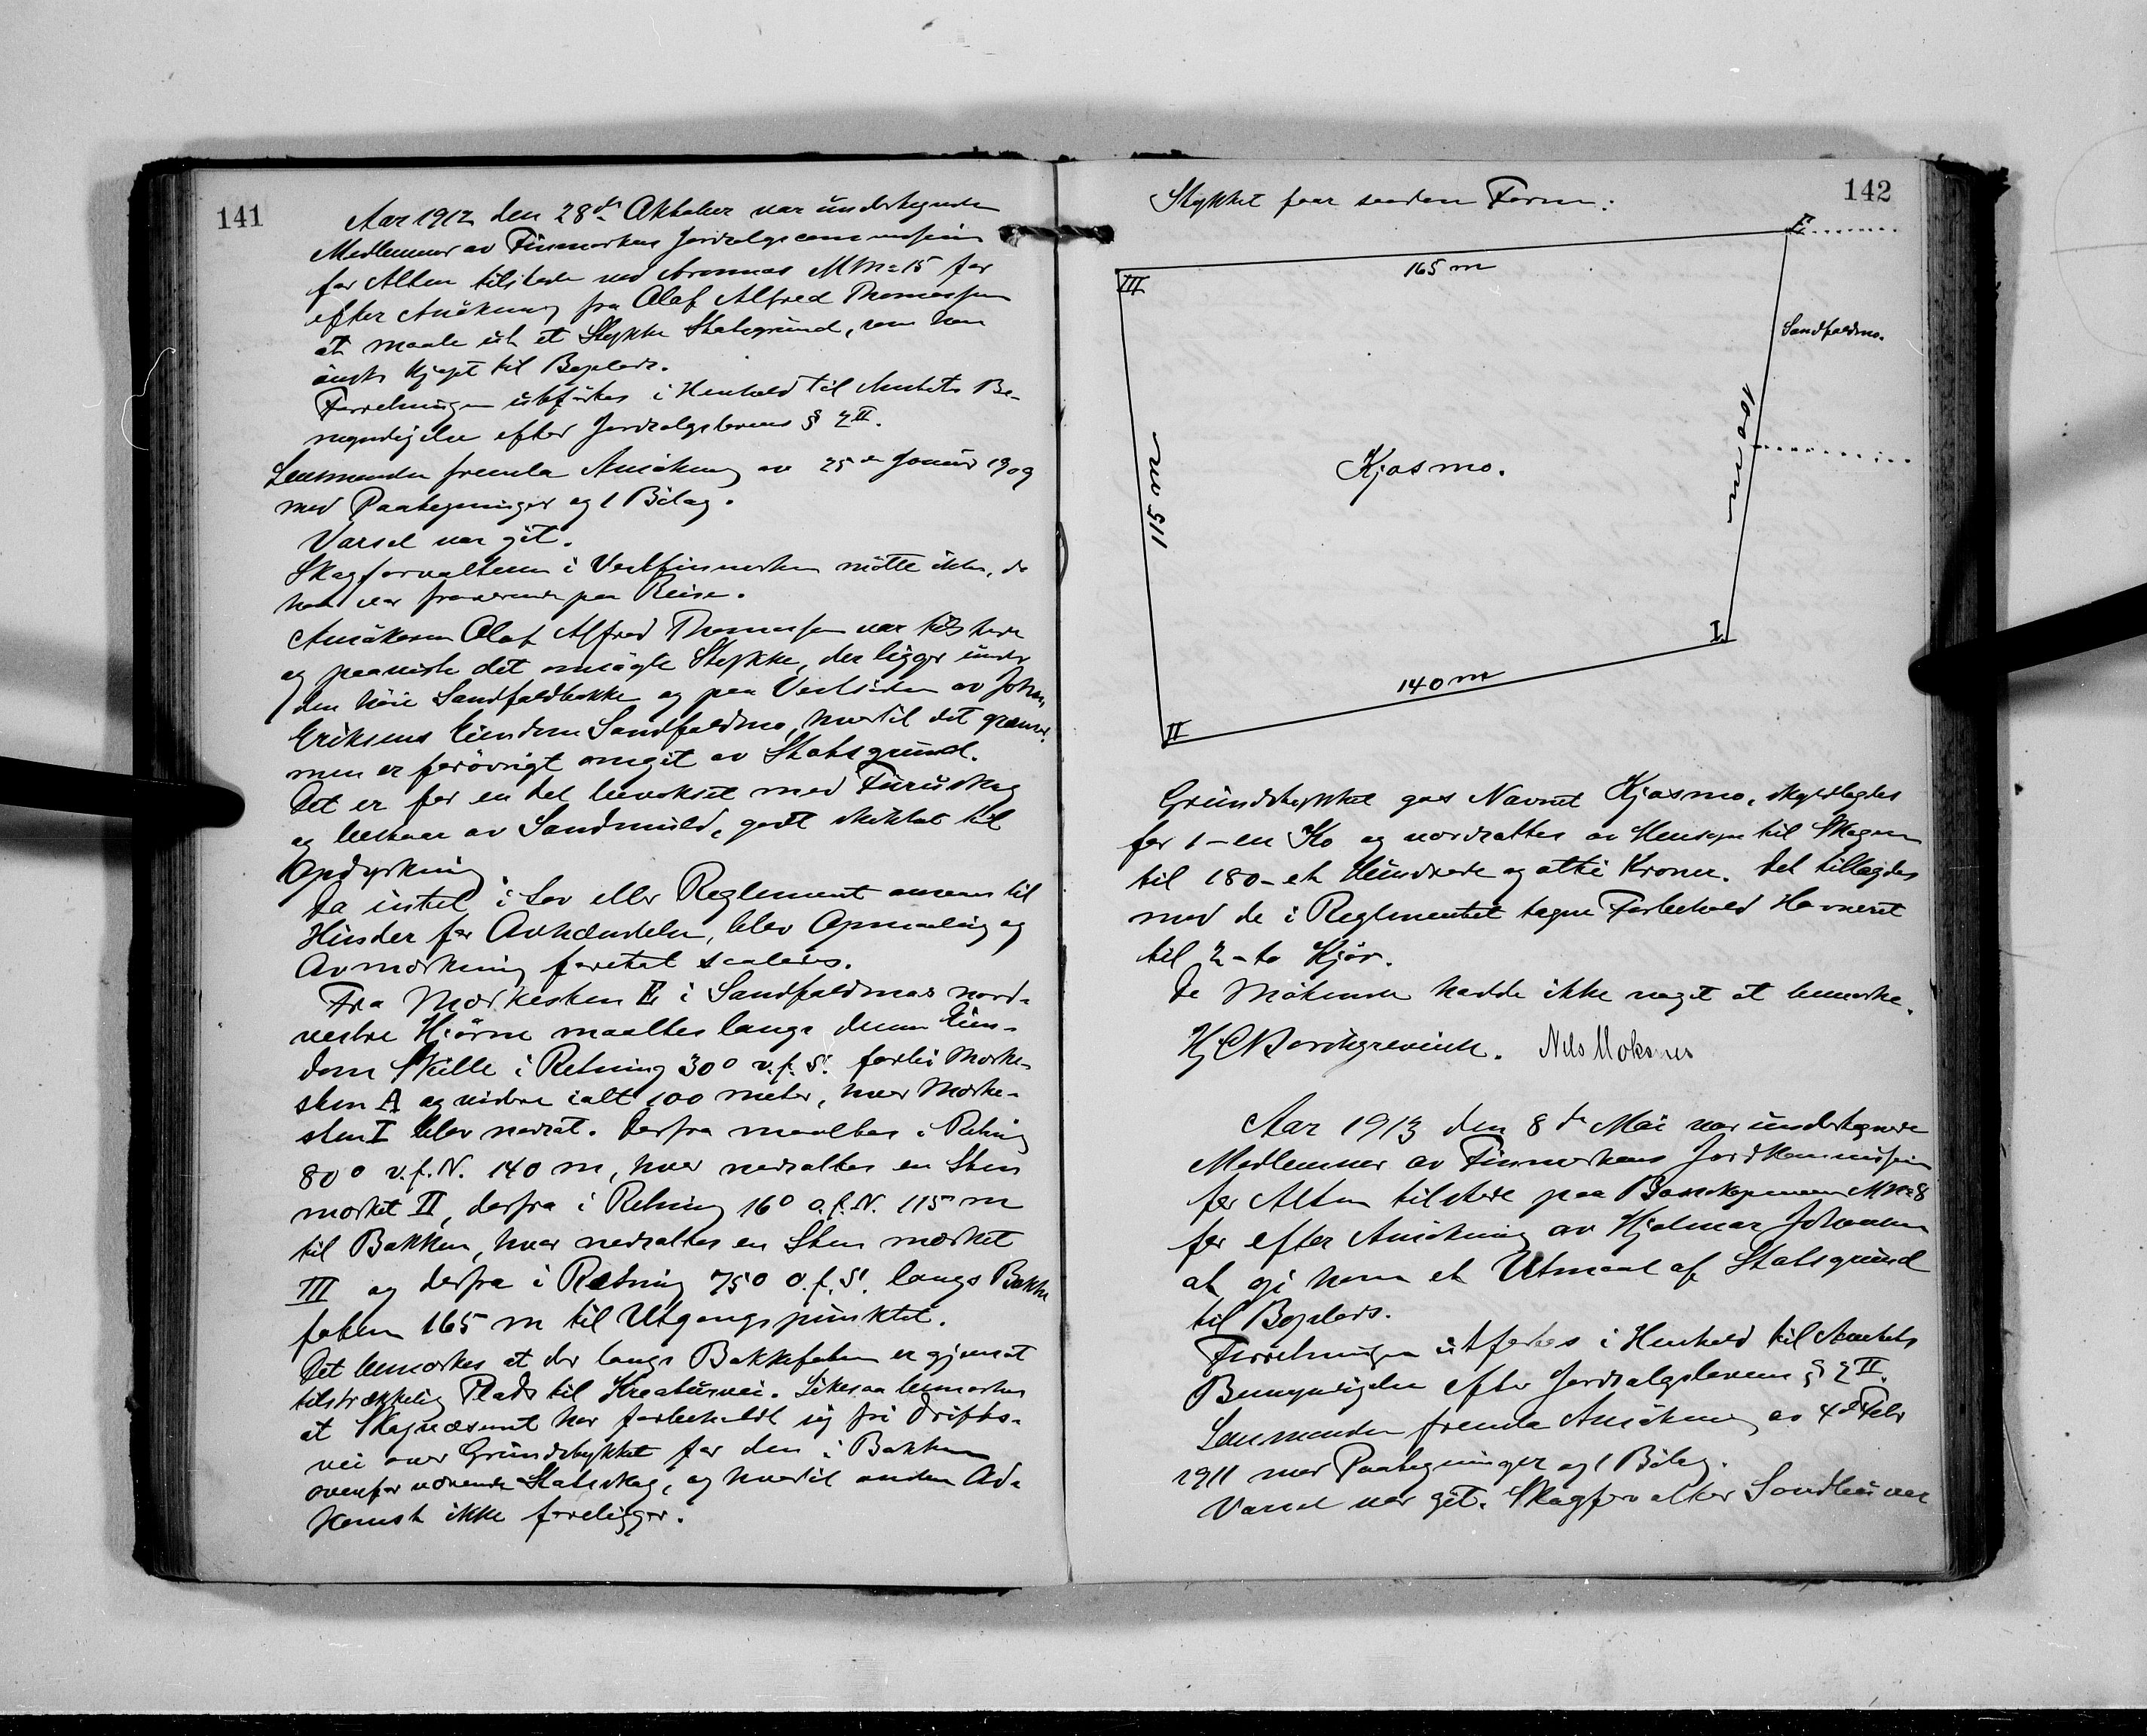 141
Aar 1912 den 28de Oktober var undertegnede
Medlemmer av Finmarkens Jordsalgscommission
for Alten tilstede ved Aronnæs M No 15 for
efter Ansökning fra Olaf Alfred Thomassen
at maale ut et Stykke Statsgrund, som han
önsker kjöpt til Boplads.
Forretningen utförtes i Henhold til Amtets Be-
myndigelse efter Jordsalgslovens § 2 II.
Lensmanden fremla Ansökning av 25de Januar 1909
med Paategninger og 1 Bilag.
Varsel var git.
Skogforvalteren i Vestfinmarken mötte ikke, da
han var fraværende paa Reise.
Ansökeren Olaf Alfred Thomassen var tilstede
og paaviste det omsögte Stykke, der ligger under
den höie Sandfaldbakke og paa Vestsiden av Johan
Eriksens Eiendom Sandfaldmo, hvortil det grænser,
men er forövrigt omgit av Statsgrund.
Det er for en Del bevokset med Furuskog
og bestaar av Sandmuld, godt skikket til
Opdyrkning.
Da intet i Lov eller Reglement ansees til
Hinder for Avhændelse, blev Opmaaling og
Avmerkning foretat saaledes.
Fra Merkesten E i Sandfaldmos nord-
vestre Hjörne maaltes langs denne Eien-
doms Skille i Retning 30° v.f.S. forbi Merke-
sten A og videre ialt 100 meter, hvor Merke-
sten I blev nedsat. Derfra maaltes i Retning
80° v.f.N. 140 m, hvor nedsattes en Sten
merket II, derfra i Retning 16° o.f.N. 115 m
til Bakken, hvor nedsattes en Sten merket
III og derfra i Retning 75° o.f.S. langs Bakke
foten 165 m til Utgangspunktet.
Det bemerkes at der langs Bakkefoten er gjensat
tilstrækkelig Plads til Kreaturvei. Likesaa bemerkes
at Skogvæsenet har forbeholdt sig fri Drifts-
vei over Grundstykket for den i Bakken
ovenfor værende Statsskog, og hvortil anden Ad-
komst ikke foreligger.
142
Stykket faar saadan Form:
E
III
165 m
Sandfaldmo.
100 m
115 m
Kjosmo.
I
140 m
II
Grundstykket gaves Navnet Kjosmo, skyldlagdes
for 1 - en Ko og værdsattes av Hensyn til Skogen
til 180 - et Hundrede og otti Kroner. Det tillagdes
med de i Reglementet tagne Forbehold Havneret
til 2 - to Kjör.
De Mötende hadde ikke noget at bemerke.
Hj C Borchgrevink. Nils Moksnes
Aar 1913 den 8de Mai var undertegnede
Medlemmer av Finmarkens Jordkommission
for Alten tilstede paa Bossekopmoen M No 8
for efter Ansökning av Hjalmar Johansen
at gi ham et Utmaal af Statsgrund
til Boplads.
Forretningen utförtes i Henhold til Amtets
Bemyndigelse efter Jordsalgslovens § 2 II.
Lensmanden fremla Ansökning av 4de Febr
1911 med Paategninger og 1 Bilag.
Varsel var git. Skogforvalter